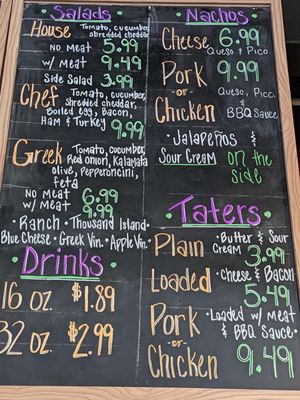 • Salads •
House Tomato, cucumber,
shredded cheddar
No meat 5.99
w/ meat 9.49
Side Salad 3.99
Chef Tomato, cucumber,
shredded cheddar,
Boiled egg, Bacon,
Ham & Turkey 9.99
Greek Tomato, cucumber,
Red onion, Kalamata
olive, Pepperoncini,
feta
No meat 6.99
w/ meat 9.99
• Ranch • Thousand Island •
Blue Cheese • Greek Vin. • Apple Vin. •
• Drinks •
16 oz. $1.89
32 oz. $2.99
• Nachos •
Cheese 6.99
Queso & Pico
Pork 9.99
-or- Queso, Pico,
Chicken & BBQ Sauce
• Jalapeños &
Sour Cream on the
side
• Taters •
Plain • Butter & Sour
Cream 3.99
Loaded • Cheese & Bacon
5.49
Pork • Loaded w/ meat
-or- & BBQ Sauce •
Chicken 9.49